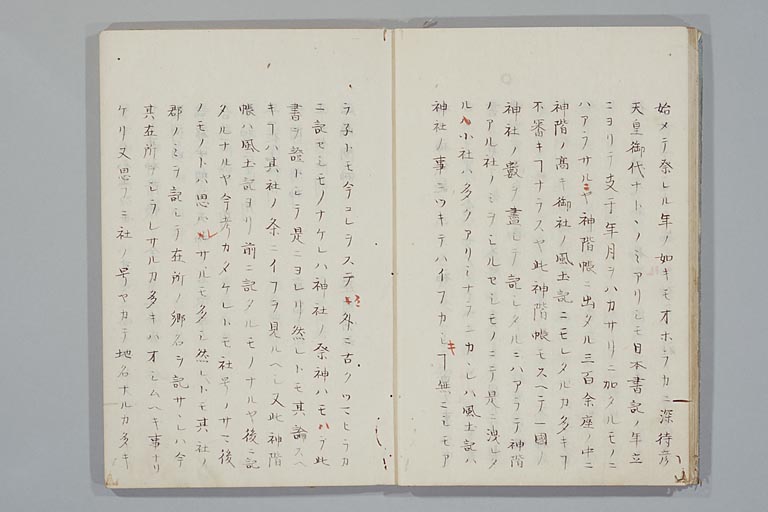 始メテ祭レル年ノ如キモオホヨカニ深待彦
天皇御代ナトヽノミアリシモ日本書記ノ年立
ニヨリテ支干年月ヲハカサリニ加タルモノニ
ハアラサルニヤ神階帳ニ出タル三百余座ノ中ニ
神階ノ高キ御社ノ風土記ニモレタルカ多キヿ
不審キヿナラスヤ此神階帳モスヘテ一國ノ
神社ノ數ヲ盡シテ記シタルニハアラテ神階
ノアル社ノミヲシルセシモノニテ是ニ洩レタ
ル小社ハ多クアリシナラニカヽレハ風土記ハ
神社ノ事ニツキテハイフカシキヿ無ニシモア
ラ子トモ今コレヲステ外ニ古クツマヒラカ
ニ記セシモノナケレハ神社ノ祭神ハモハラ此
書ヲ證トシテ是ニヨレリ然レトモ其論スヘ
キヿハ其社ノ条ニイフヲ見ルヘシ又此神階
帳ハ風土記ヨリ前ニ記タルモノナルヤ後ニ記
タルナルヤ今考カタケレトモ社号ノサマ後
ノモノトハ思ハレサルモ多シ然レトモ其社ノ
郡ノミヲ記シテ在所ノ郷名ヲ記サヽレハ今
其在所ノシラレサルカ多キハオシムヘキ事ナリ
ケリ又思フニ社ノ号ヤカテ地名ナルカ多キ